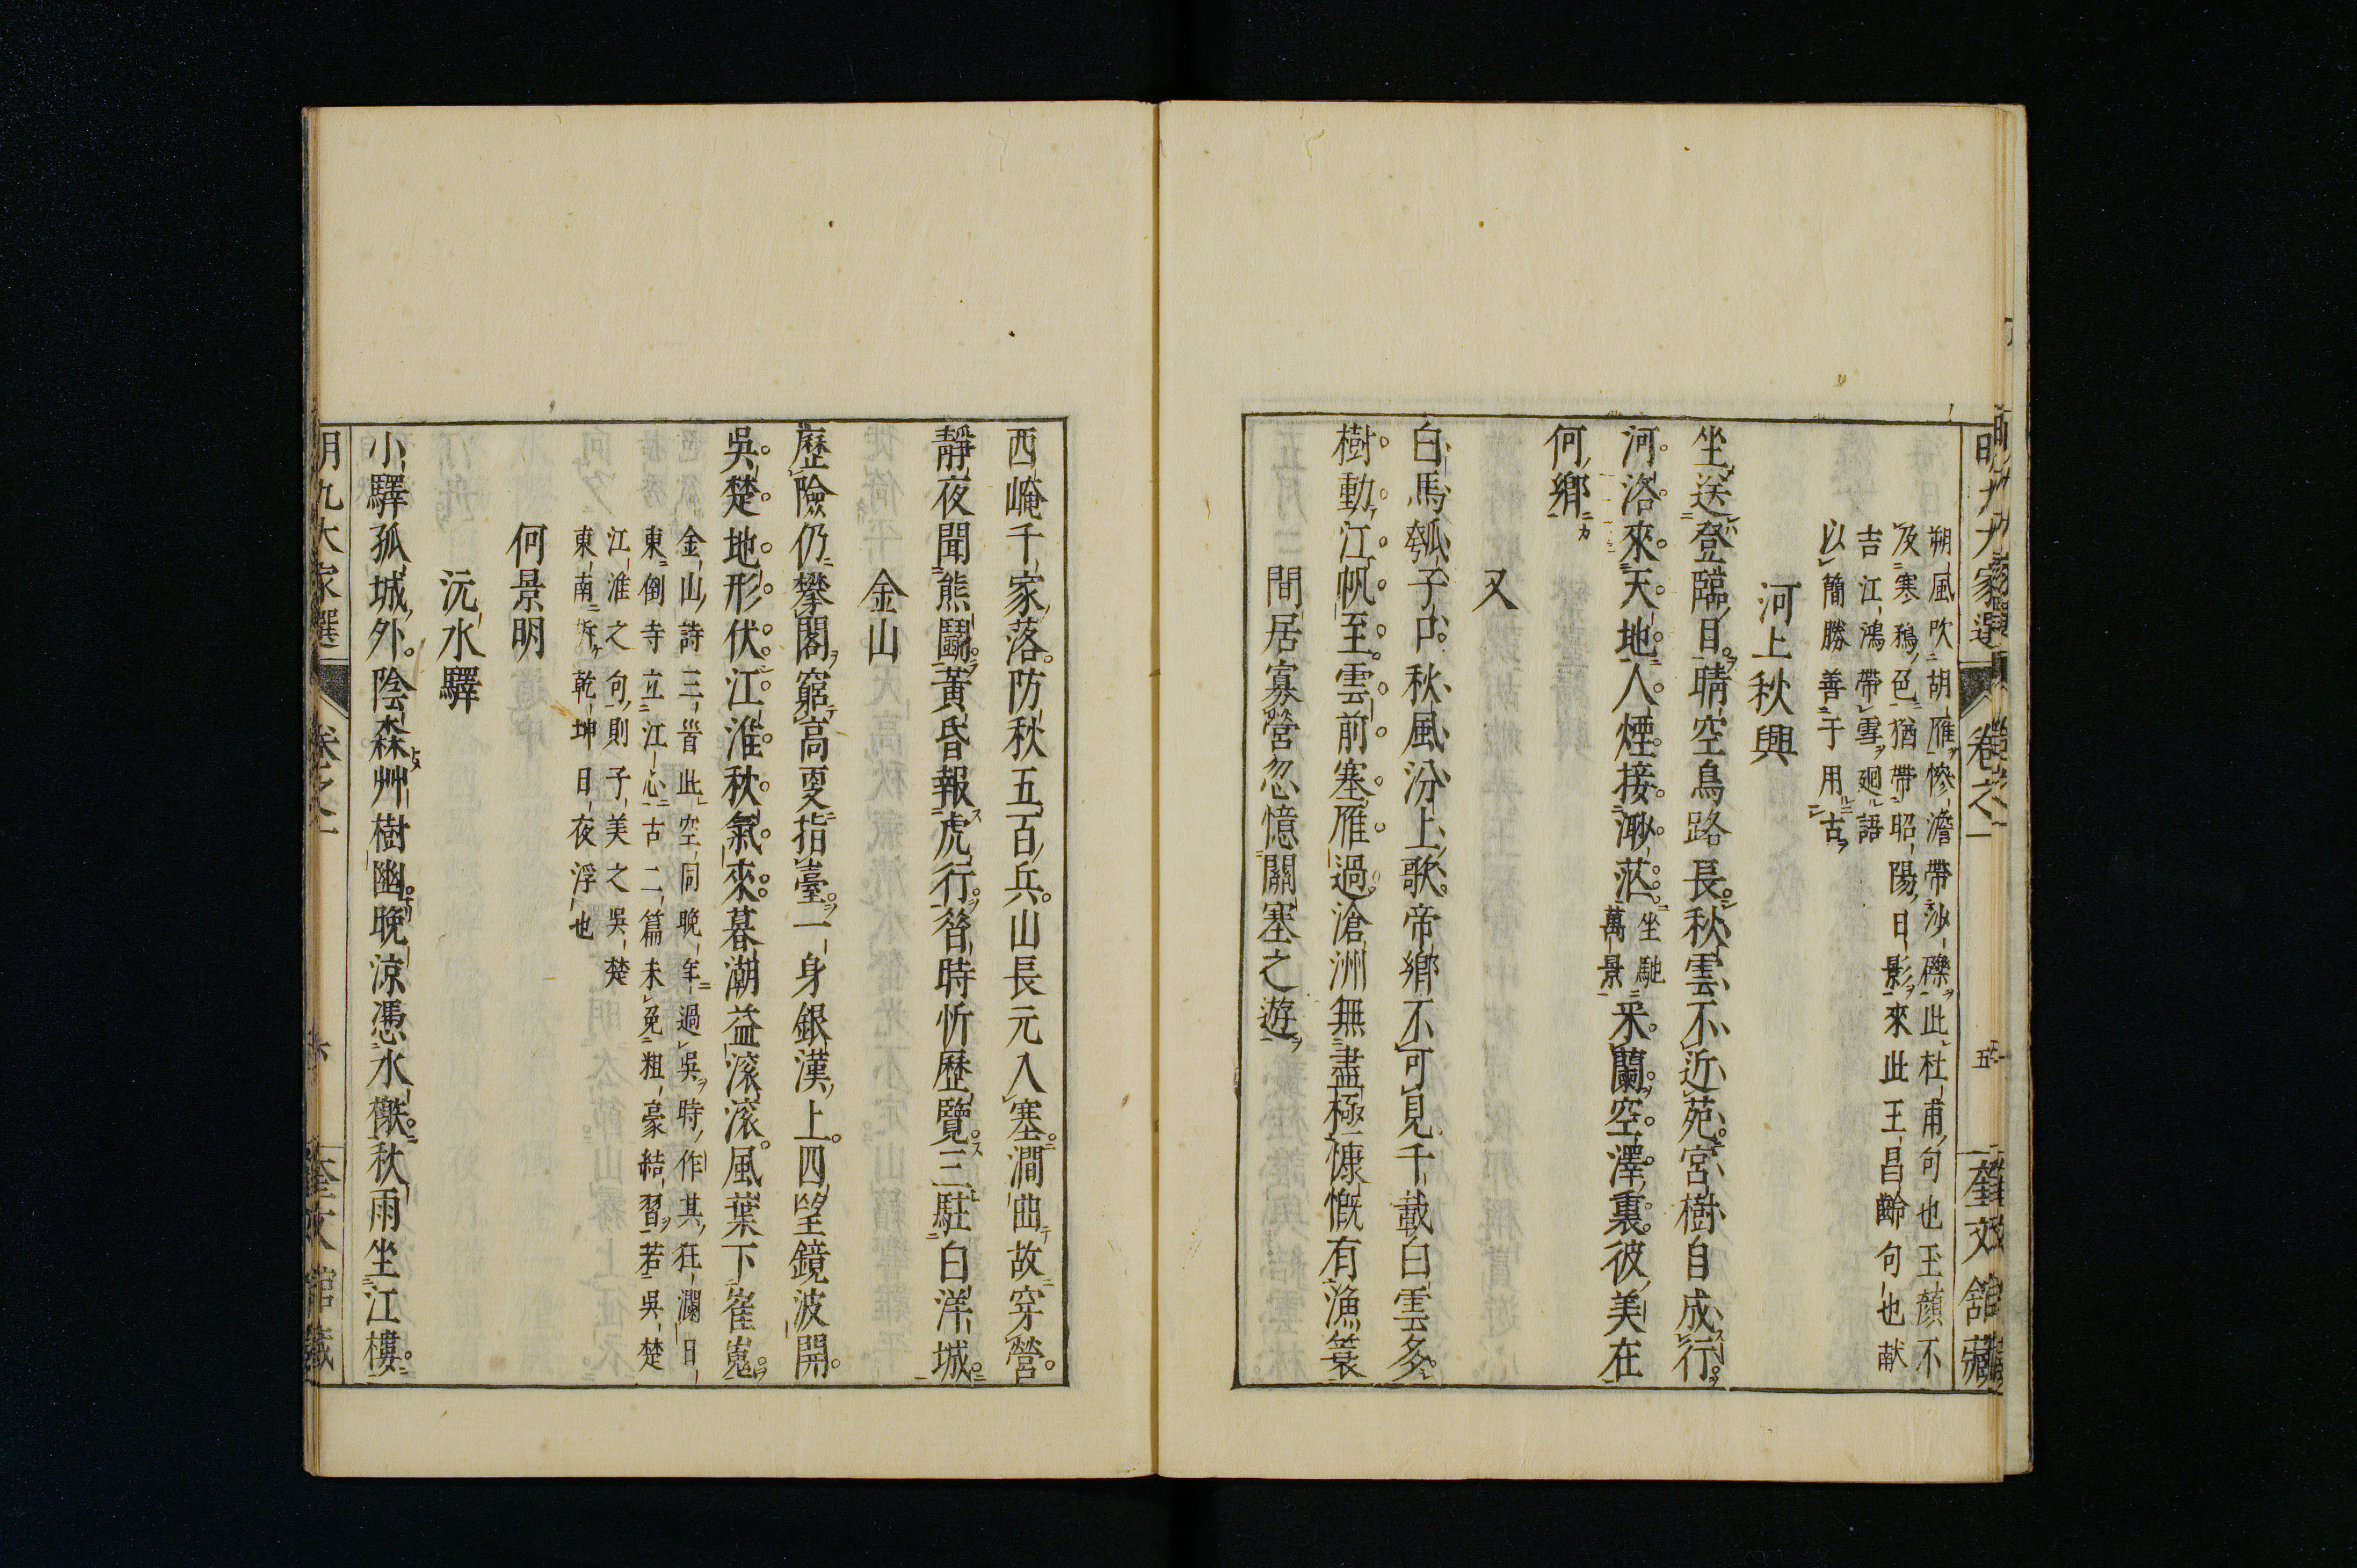 朔風吹胡雁慘澹帶沙礫此杜甫句也王顔不
及寒鴉色猶帶昭陽日影來此王昌齡句也献
吉江鴻帶雪廻語
以簡勝善于用古
河上秋興
坐送登臨日晴空鳥路長秋雲不近苑宮樹自成行
河洛來天地人煙接渺茫坐馳萬景采蘭空澤裏彼美在
何鄉
又
白馬瓠子口秋風汾上歌帝鄉不可見千載白雲多
樹動江帆至雲前塞雁過滄洲無盡極慷慨有漁簑
間居寡營忽憶關塞之遊
西崦千家落防秋五百兵山長元入塞澗曲故穿營
靜夜聞熊鬭黃昏報虎行昝時忻歷覽三駐白洋城
金山
歷險仍攀閣窮高更指臺一身銀漢上四望鏡波開
吳楚地形伏江淮秋氣來暮潮益滚滚風葉下崔嵬
金山詩三首此空同晚年過吳時作其狂瀾日
東倒寺立江心古二篇未免粗豪結習若吳楚
江淮之句則子美之吳楚
東南坼乾坤日夜浮也
何景明
沅水驛
小驛孤城外陰森艸樹幽晚涼憑水檄秋雨坐江樓
明九大家選
卷之一
奎文館藏
明九大家選
卷之一
五
奎文舘藏